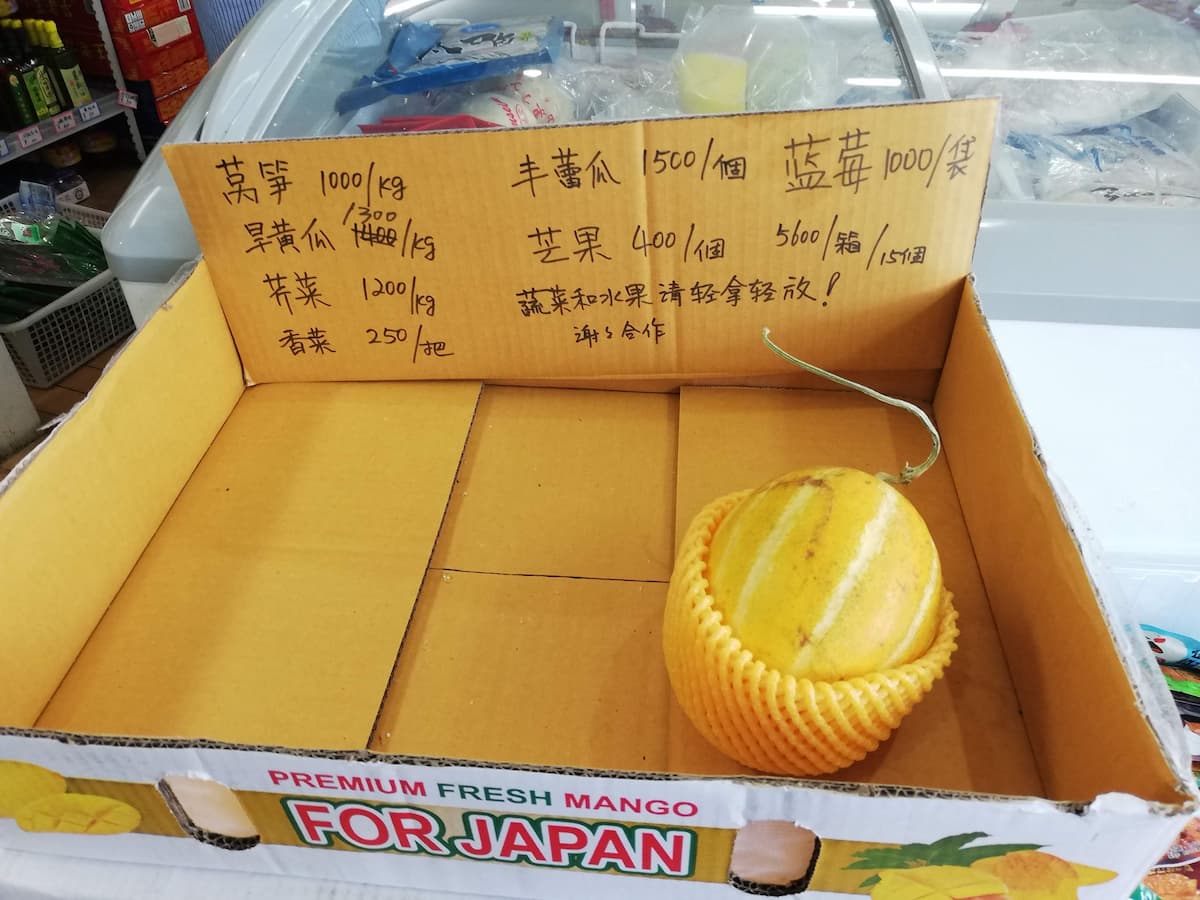 莴笋 1000/kg
旱黄瓜 1300 1400/kg
芥菜 1200/kg
香菜 250/把
丰蕾瓜 1500/個
蓝莓 1000/袋
芒果 400/個 5600/箱/15個
蔬菜和水果请轻拿轻放!
谢〻合作
PREMIUM FRESH MANGO
FOR JAPAN